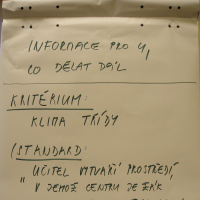 INFORMACE PRO U,
CO DĚLAT DÁL
KRITÉRIUM:
KLIMA TŘÍDY
(STANDARD:
"UČITEL VYTVÁŘÍ PROSTŘEDÍ,
V JEHOŽ CENTRU JE ŽÁK